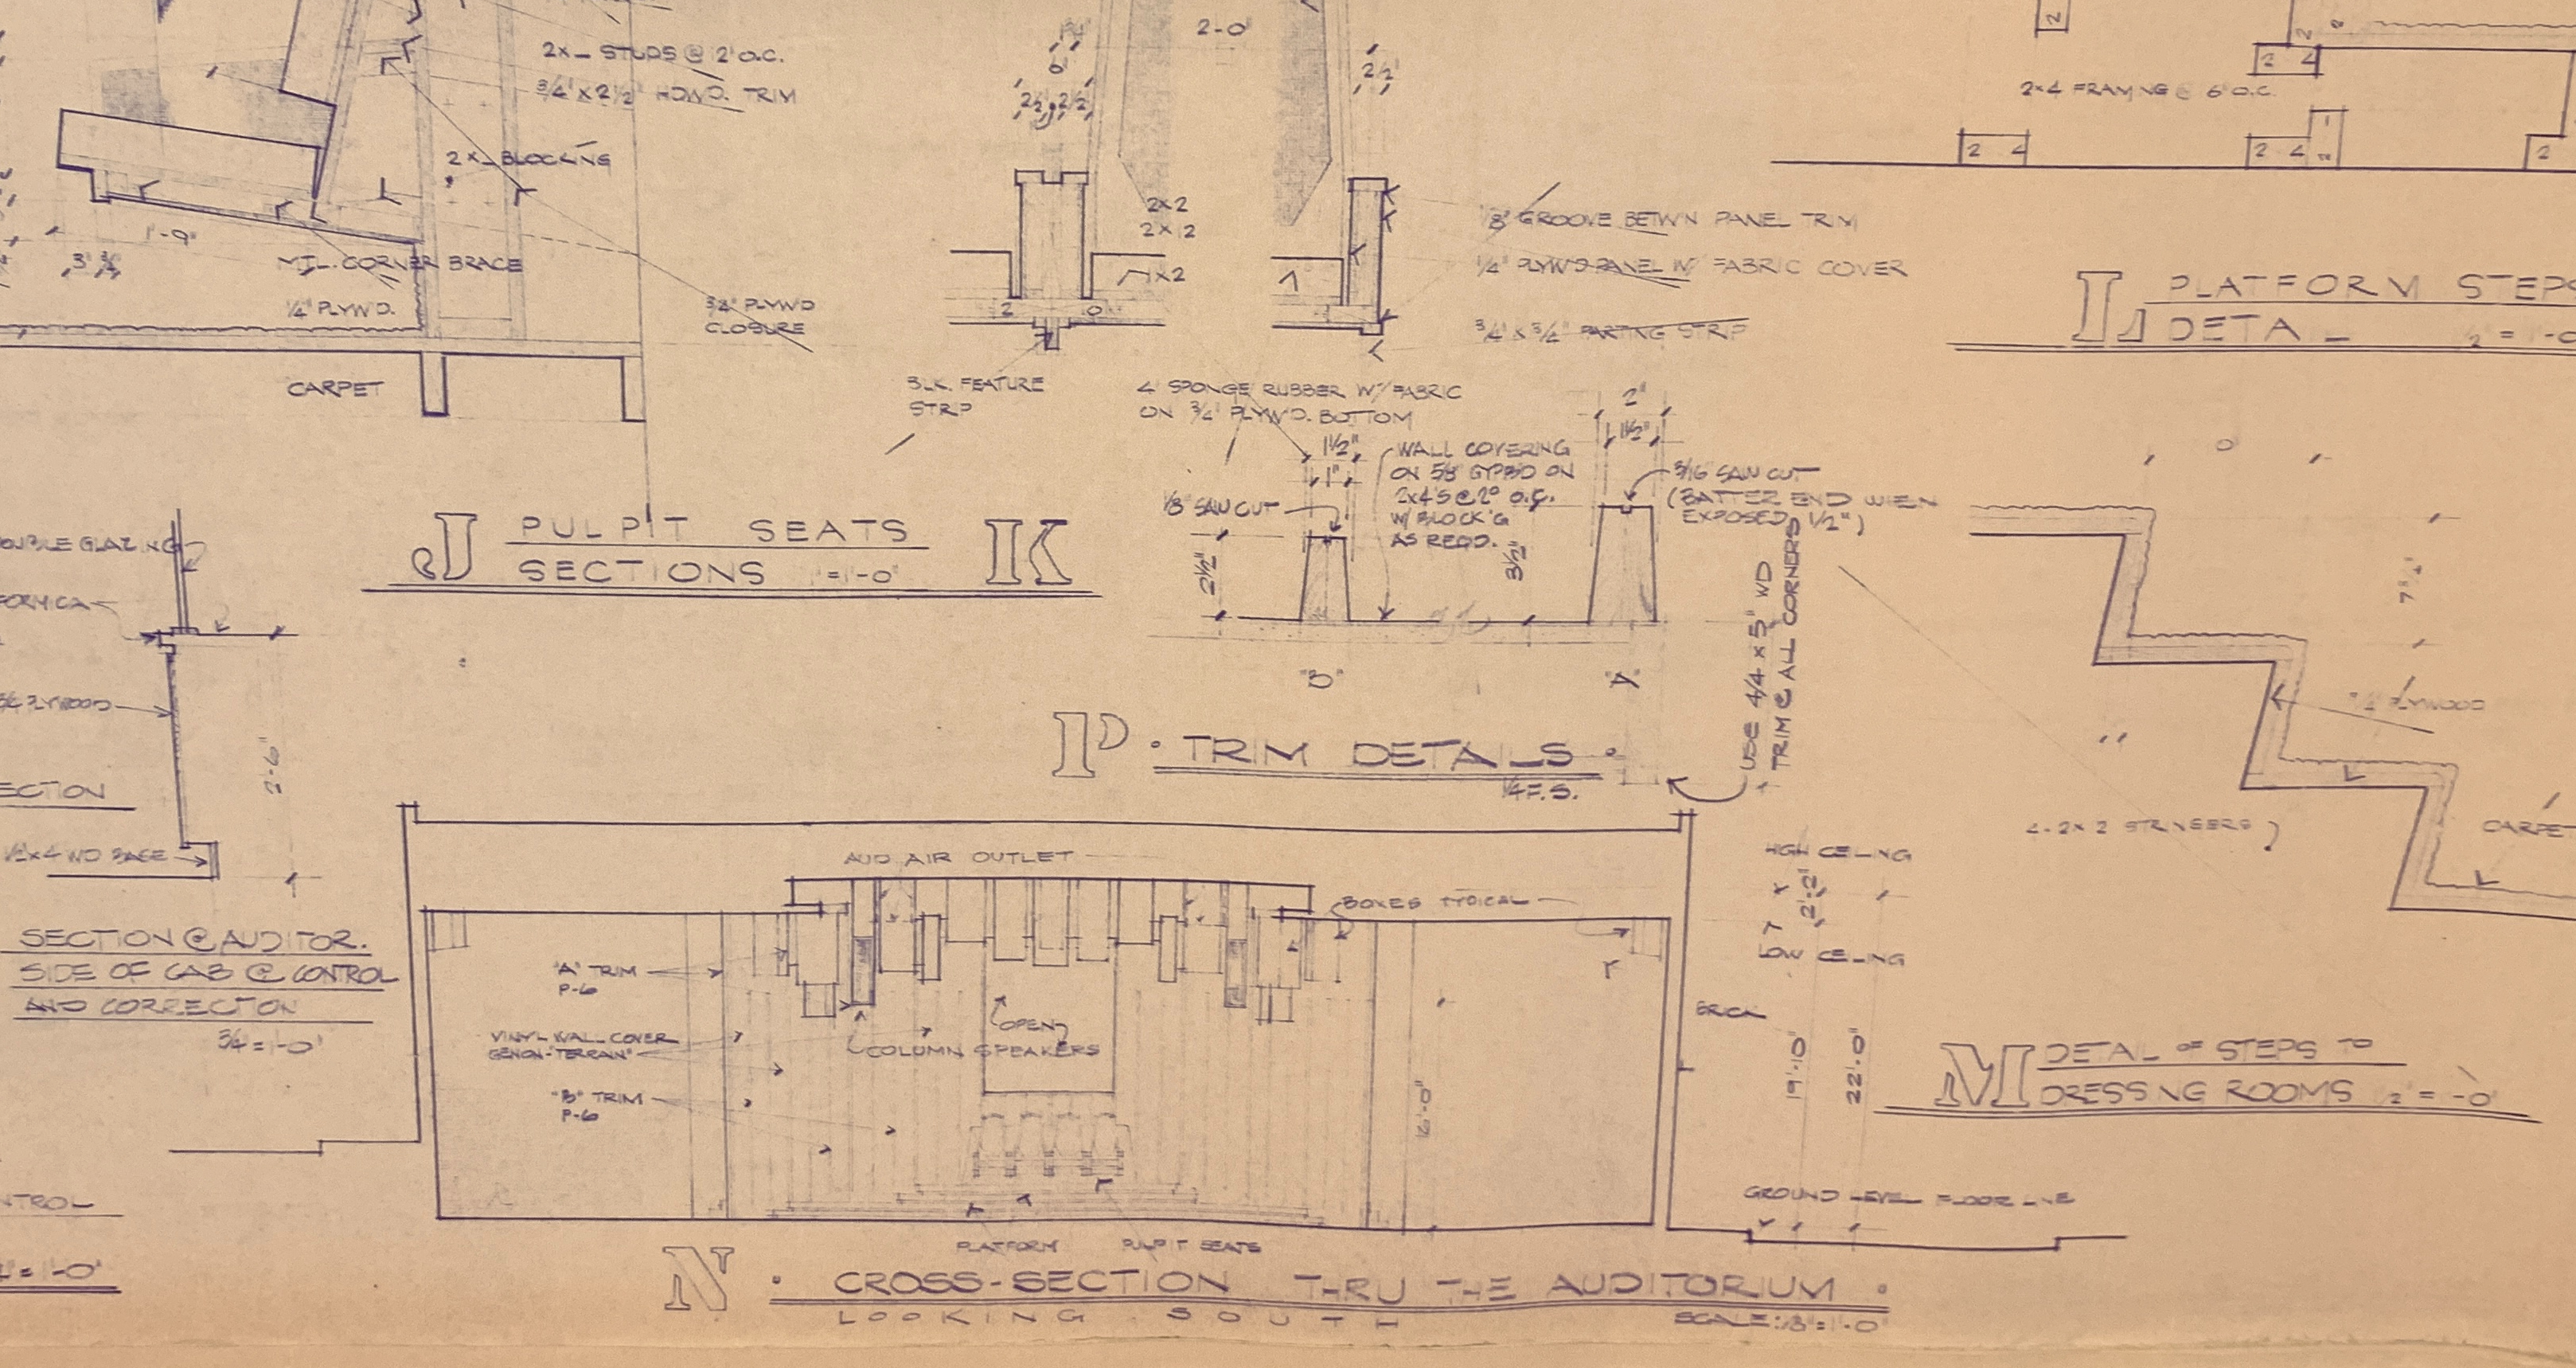 2x_ STUDS @ 2' O.C.
3/4" X 2 1/2" HDWD. TRIM
2 X_ BLOCKING
1'-9"
MTL. CORNER BRACE
1/4" PLYWD.
3/4" PLYWD
CLOSURE
CARPET
J PULPIT SEATS K
SECTIONS 1"=1'-0"
2'-0"
6"
2 1/2" 2 1/2"
2 1/2"
2x2
2x2
1x2
BLK. FEATURE
STRIP
1/8" GROOVE BETW'N PANEL TRIM
1/4" PLYW'D PANEL W/ FABRIC COVER
3/4" X 3/4" PARTING STRIP
4" SPONGE RUBBER W/ FABRIC
ON 3/4" PLYW'D. BOTTOM
1 1/2"
1"
1/8" SAW CUT
2 1/2"
WALL COVERING
ON 5/8" GYPBD ON
2x4'S @ 2° O.C.
W/ BLOCK'G
AS REQD.
3 1/2"
2"
1 1/2"
3/16" SAW CUT
(BATTER END WHEN
EXPOSED 1/2")
"B"
"A"
P • TRIM DETAILS •
1/4 F.S.
USE 4/4 x 5" WD
TRIM @ ALL CORNERS
2x4 FRAMING @ 6" O.C.
2 4
2 4
2 4
L PLATFORM STEPS
DETAIL
PLYWOOD
4-2x2 STRINGERS
CARPET
M DETAIL OF STEPS TO
DRESSING ROOMS
DOUBLE GLAZING
FORMICA
3/4 PLYWOOD
2'-6"
SECTION
1/2x4 WD BASE
SECTION @ AUDITOR.
SIDE OF CAB @ CONTROL
AND CORRECTION
3/4"=1'-0"
AUD AIR OUTLET
BOXES TYPICAL
"A" TRIM
P-6
VINYL WALL COVER
GENON-"TERRAIN"
"B" TRIM
P-6
OPEN
COLUMN SPEAKERS
16'-0"
HIGH CEILING
2'-2"
LOW CEILING
BRICK
19'-10"
22'-0"
GROUND LEVEL FLOOR LINE
PLATFORM PULPIT SEATS
N • CROSS-SECTION THRU THE AUDITORIUM •
LOOKING SOUTH
SCALE: 1/8"=1'-0"